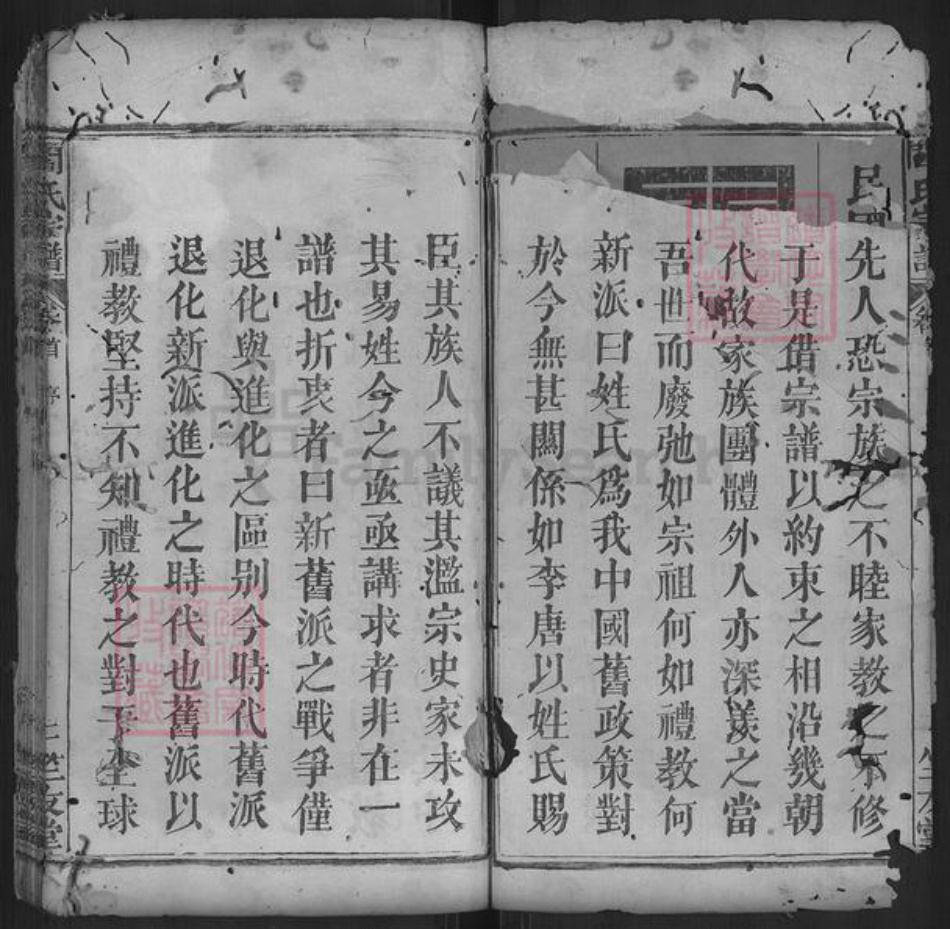 民國
先人恐宗族之不睦家教之不修
于是借宗譜以約束之相沿幾朝
代故家族團體外人亦深羨之當
吾世而廢弛如宗祖何如禮教何
新派曰姓氏為我中國舊政策對
於今無甚關係如李唐以姓氏賜
臣其族人不議其濫宗史家未攻
其易姓今之亟亟講求者非在一
譜也折衷者曰新舊派之戰爭僅
退化與進化之區別今時代舊派
退化新派進化之時代也舊派以
禮教堅持不知禮教之對于全球
氏宗譜
卷首
FamilySearch